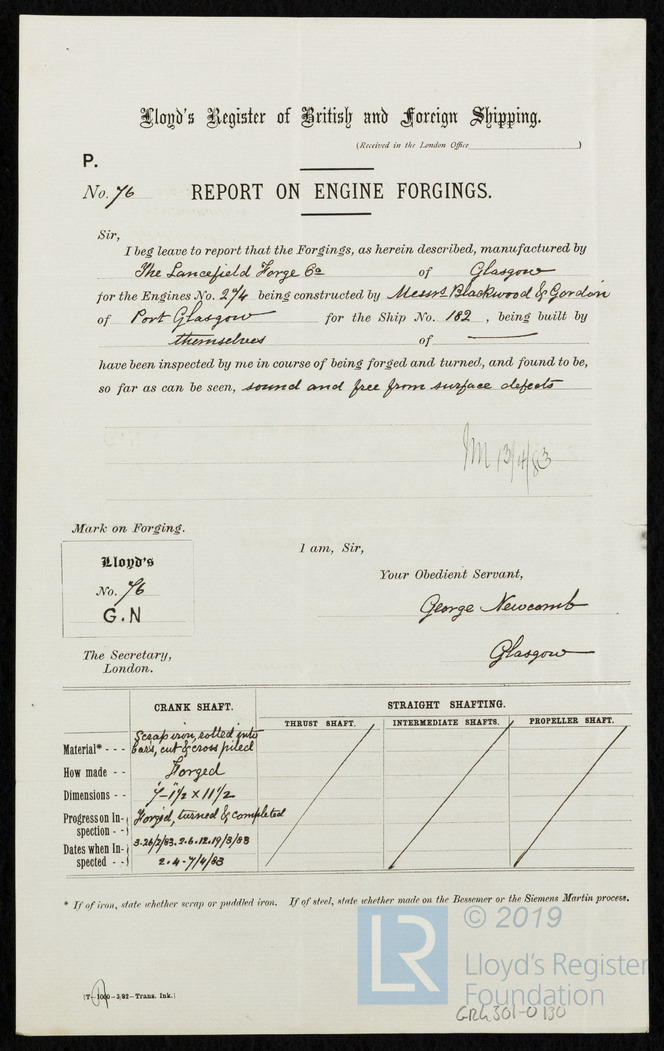 Lloyd's Register of British and Foreign Shipping.
(Received in the London Office                    )
P.
No. 76 REPORT ON ENGINE FORGINGS.
Sir,
I beg leave to report that the Forgings, as herein described, manufactured by
The Lancefield Forge Co of Glasgow
for the Engines No. 274 being constructed by Messrs Blackwood & Gordon
of Port Glasgow for the Ship No. 182, being built by
themselves of —
have been inspected by me in course of being forged and turned, and found to be,
so far as can be seen, sound and free from surface defects
13/4/83
Mark on Forging.
Lloyd's
No. 76
G.N
I am, Sir,
Your Obedient Servant,
George Newcomb
Glasgow
The Secretary,
London.
CRANK SHAFT. STRAIGHT SHAFTING.
THRUST SHAFT. INTERMEDIATE SHAFTS. PROPELLER SHAFT.
Material* - - - Scrap iron, rolled into
bars, cut & cross piled
How made - - Forged
Dimensions - - 7'-1 1/2 x 11 1/2
Progress on In-
spection - - Forged, turned & completed
Dates when In-
spected - - 3.26/2/83.2.6.12.19/3/83
2.4-7/4/83
* If of iron, state whether scrap or puddled iron. If of steel, state whether made on the Bessemer or the Siemens Martin process.
© 2019
LR
Lloyd's Register
Foundation
(T—1000—3/82—Trans. Ink.)
GRG301-0130